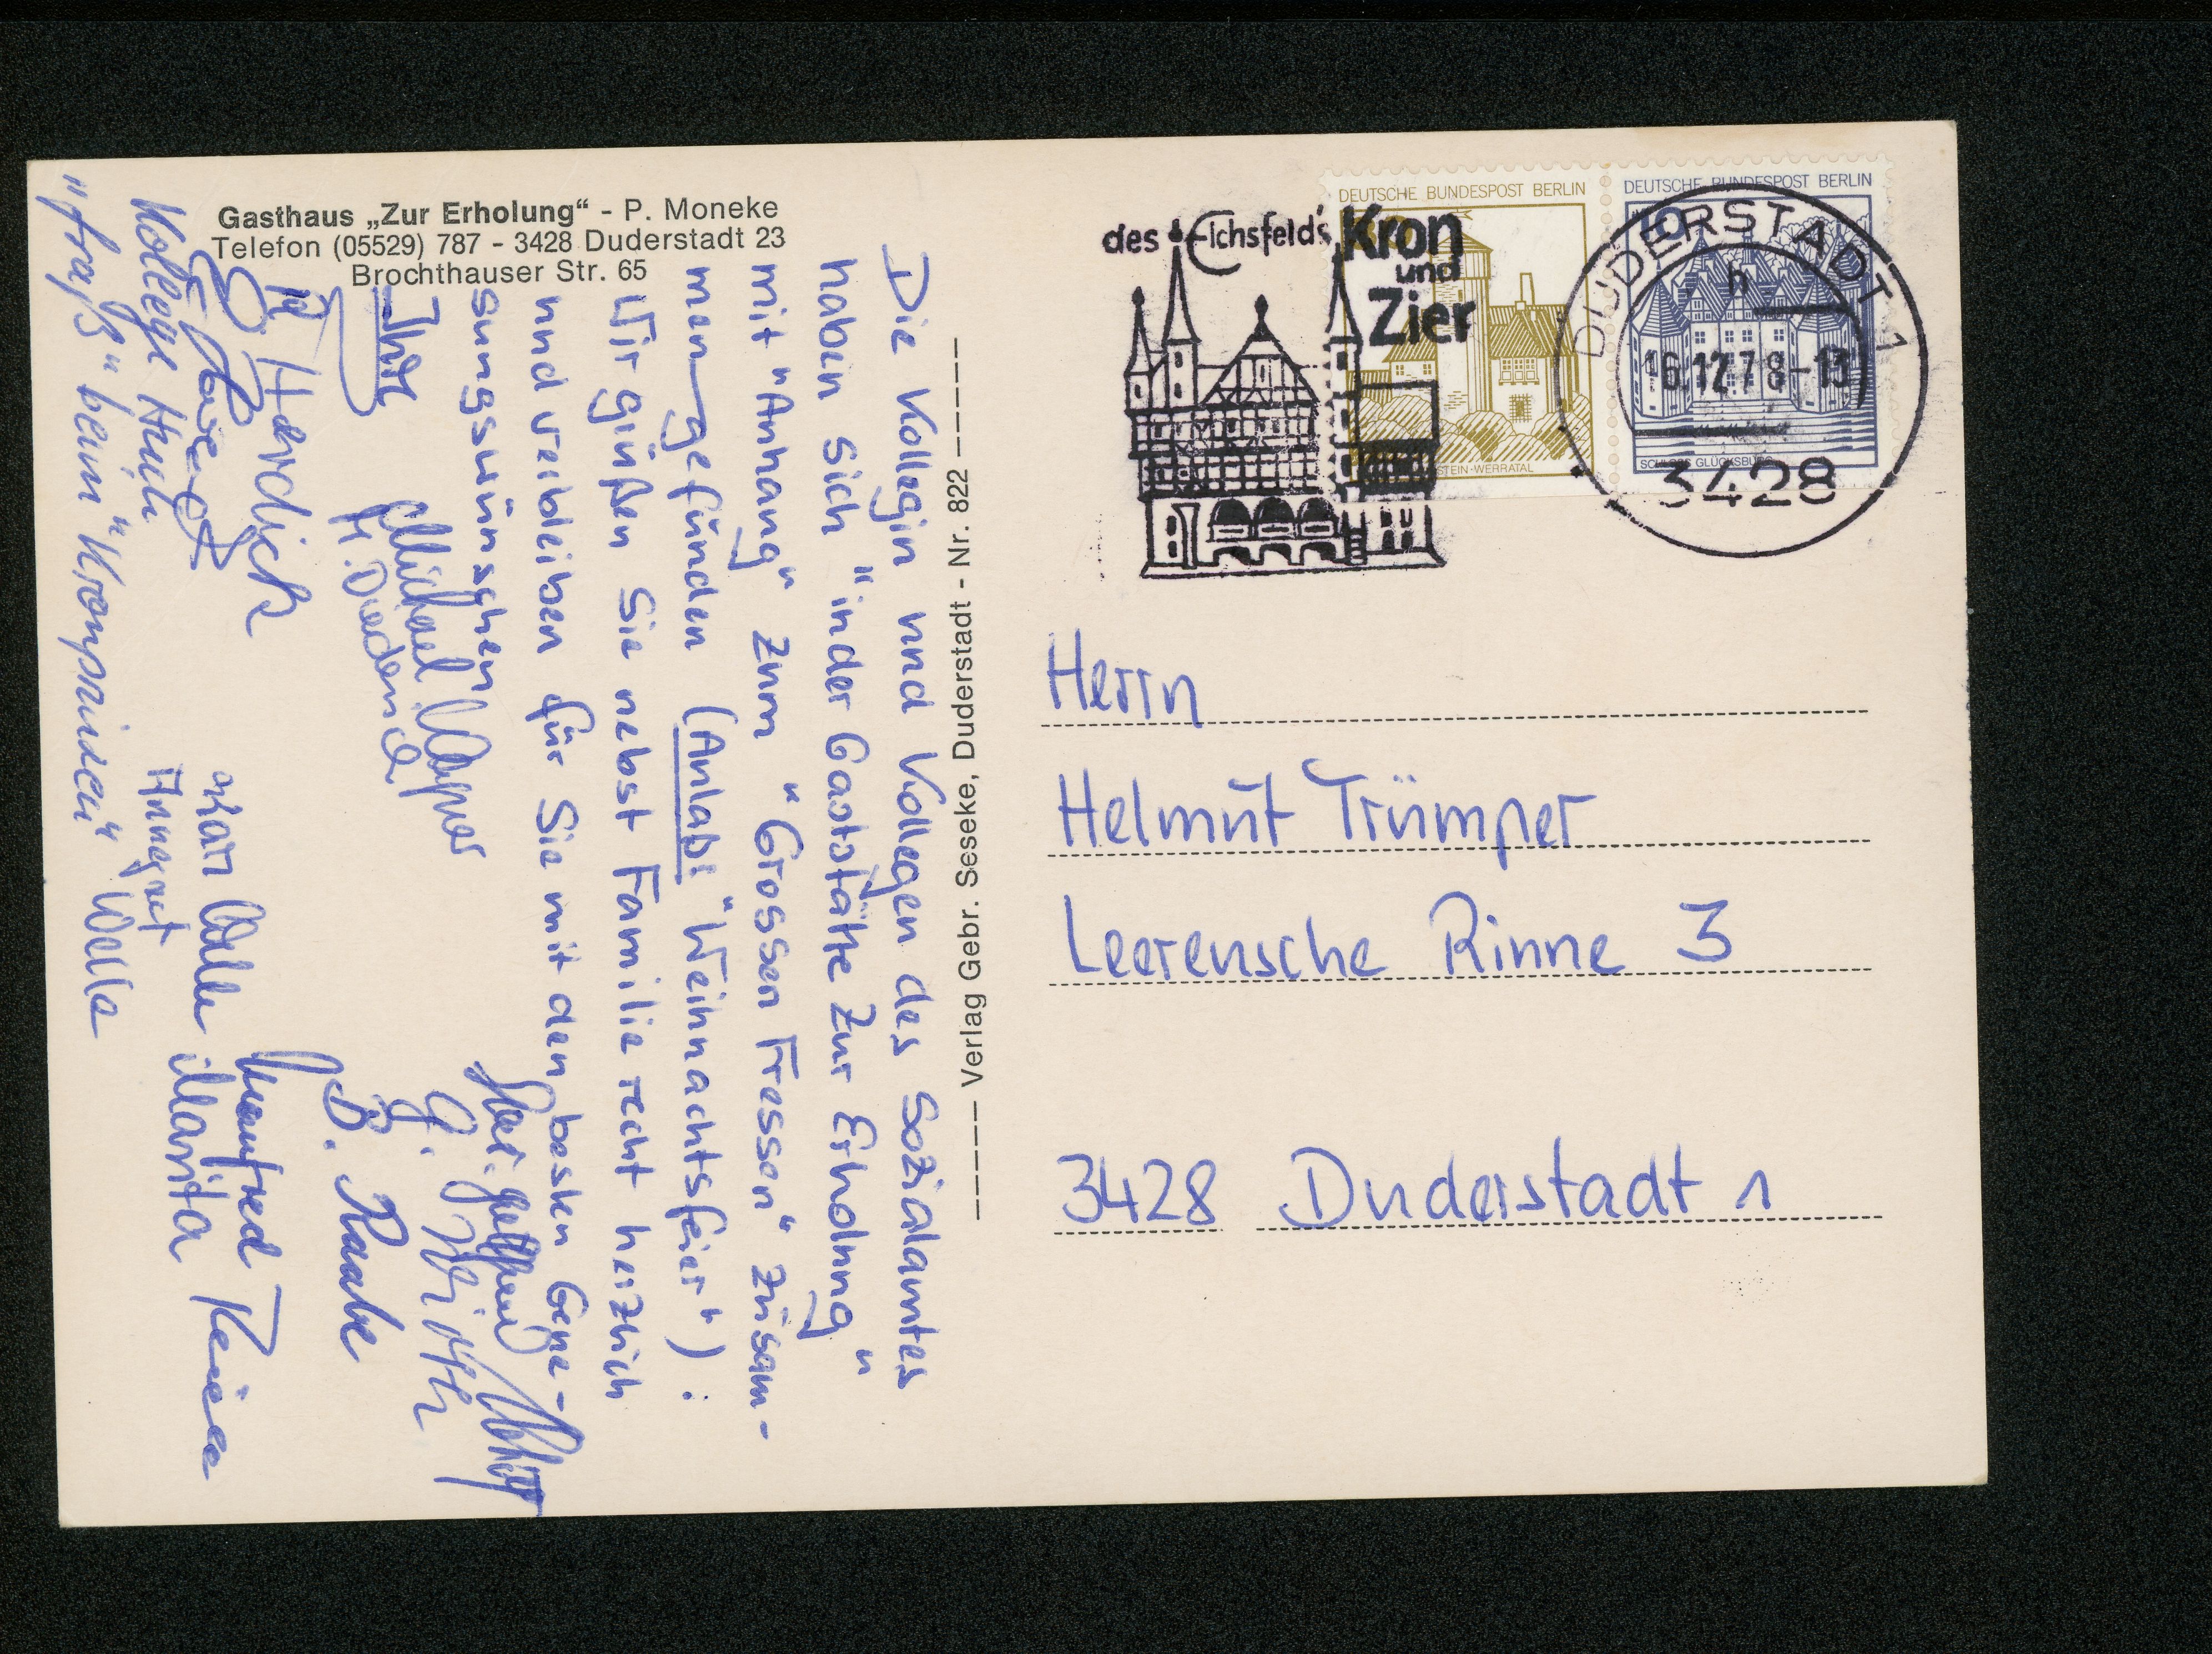 Gasthaus „Zur Erholung“ - P. Moneke
Telefon (05529) 787 - 3428 Duderstadt 23
Brochthauser Str. 65
Die Kollegin und Kollegen des Sozialamtes
haben sich "in der Gaststätte Zur Erholung"
mit "Anhang" zum "Grossen Fressen" zusam-
men-gefunden (Anlaß: "Weihnachtsfeier"):
Wir grüßen Sie nebst Familie recht herzlich
und verbleiben für Sie mit den besten Gene-
sungswünschen
Ihre
Michael
H.
G.
B. Raabe
Manfred
Marita
Kollege
Annegret
"fraß" beim "Kronprinzen" Wolle
Verlag Gebr. Seseke, Duderstadt - Nr. 822
des Eichsfeld's Kron
und
Zier
DEUTSCHE BUNDESPOST BERLIN
STEIN-WERRATAL
DEUTSCHE BUNDESPOST BERLIN
10
SCHLOSS GLÜCKSBURG
DUDERSTADT 1
h
16.12.78-13
3428
Herrn
Helmut Trümper
Leerensche Rinne 3
3428 Duderstadt 1